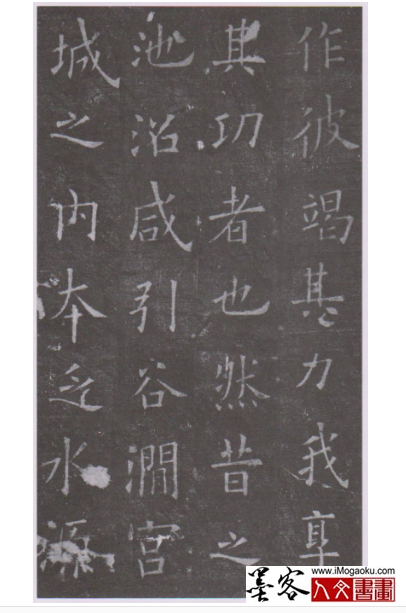 作彼竭其力我享
其功者也然昔之
池沼咸引谷澗宮
城之内本乏水源
墨客
www.iMogaoku.com
人文書畫